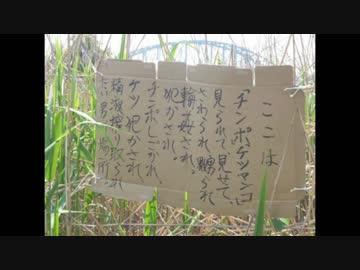 ここは
「チンポ、ケツマンコ」
見られて、見せて、
さわられ、嬲られ
輪姦され。
犯かされ、
チンポしごかれ、
ケツ犯かされ、
精液搾り取られ
たい男の場所。